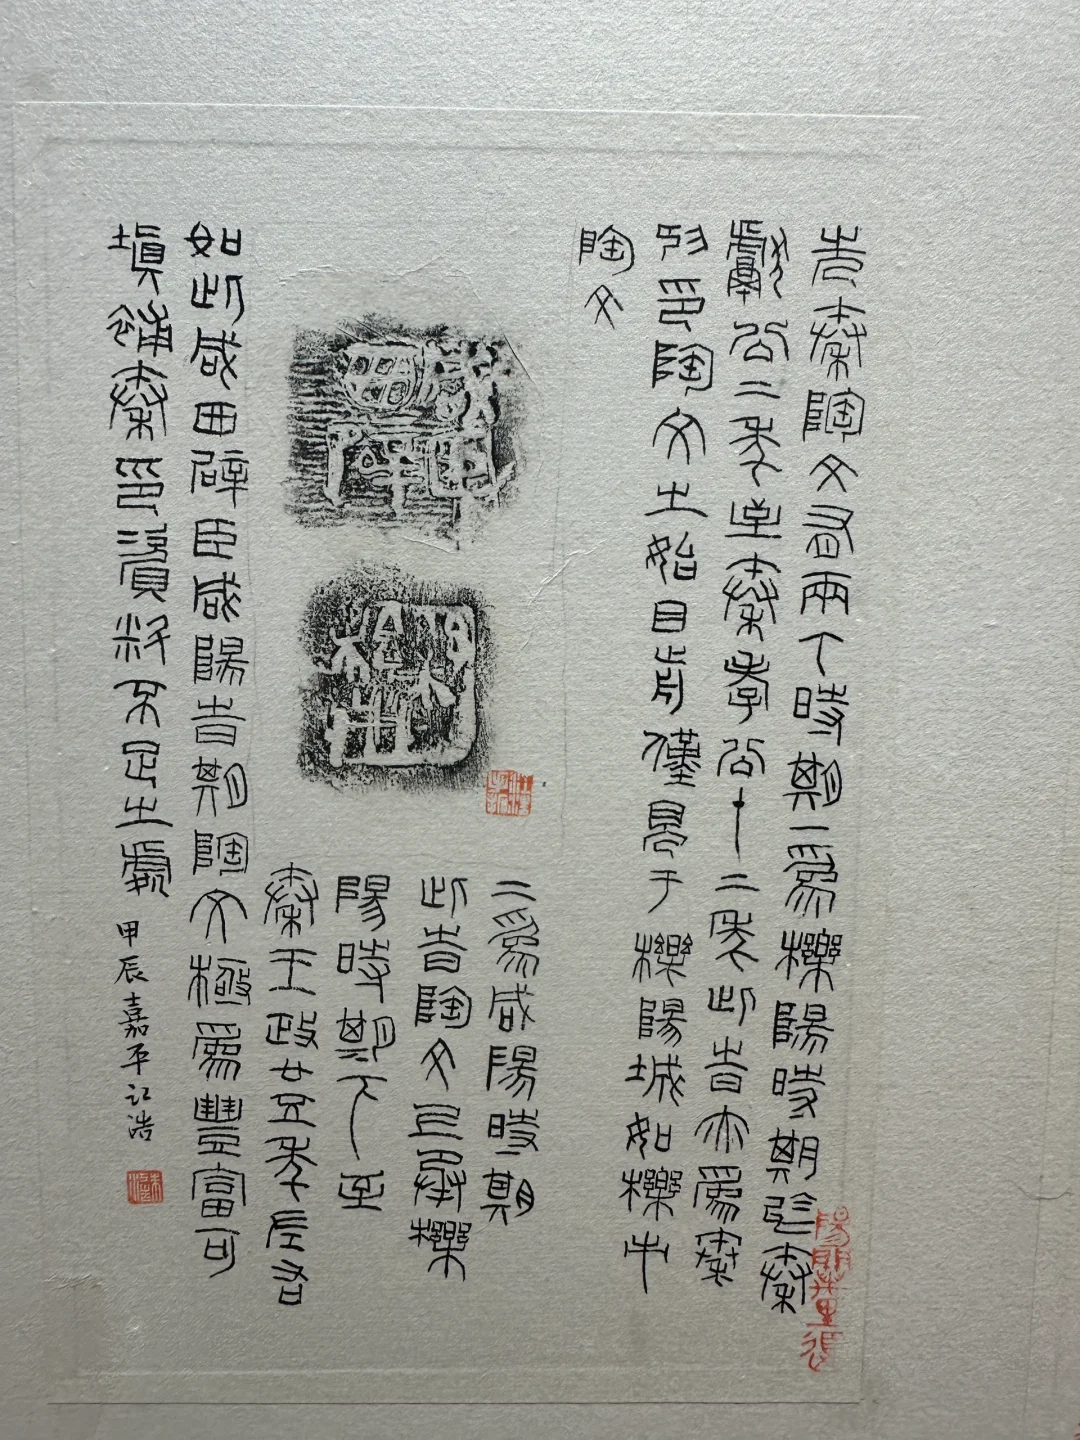 先秦陶文有兩个時期一為櫟陽時期起秦
獻公二年至秦孝公十二年此旹亦為秦
印陶文之始目前僅見于櫟陽城如櫟市
陶文
二為咸陽時期
此旹陶文上承櫟
陽時期下至
秦王政廿五年左右
如此咸辟臣咸陽旹期陶文極為豐富可
填補秦印資料不足之處 甲辰嘉平江浩